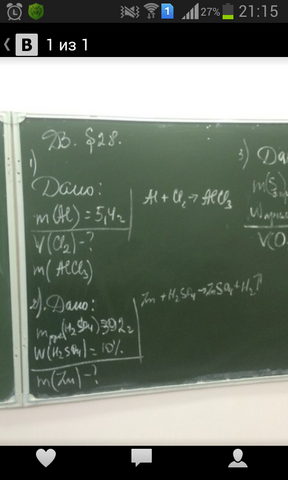 27% 21:15
B 1 из 1
ДЗ. §28.
1)
Дано:
m(Al) = 5,4г
V(Cl₂) - ?
m(AlCl₃)
Al + Cl₂ → AlCl₃
2). Дано:
(H₂SO₄) 392г
W(H₂SO₄) = 10%
m(Zn) - ?
Zn + H₂SO₄ → ZnSO₄ + H₂↑
3) Дан